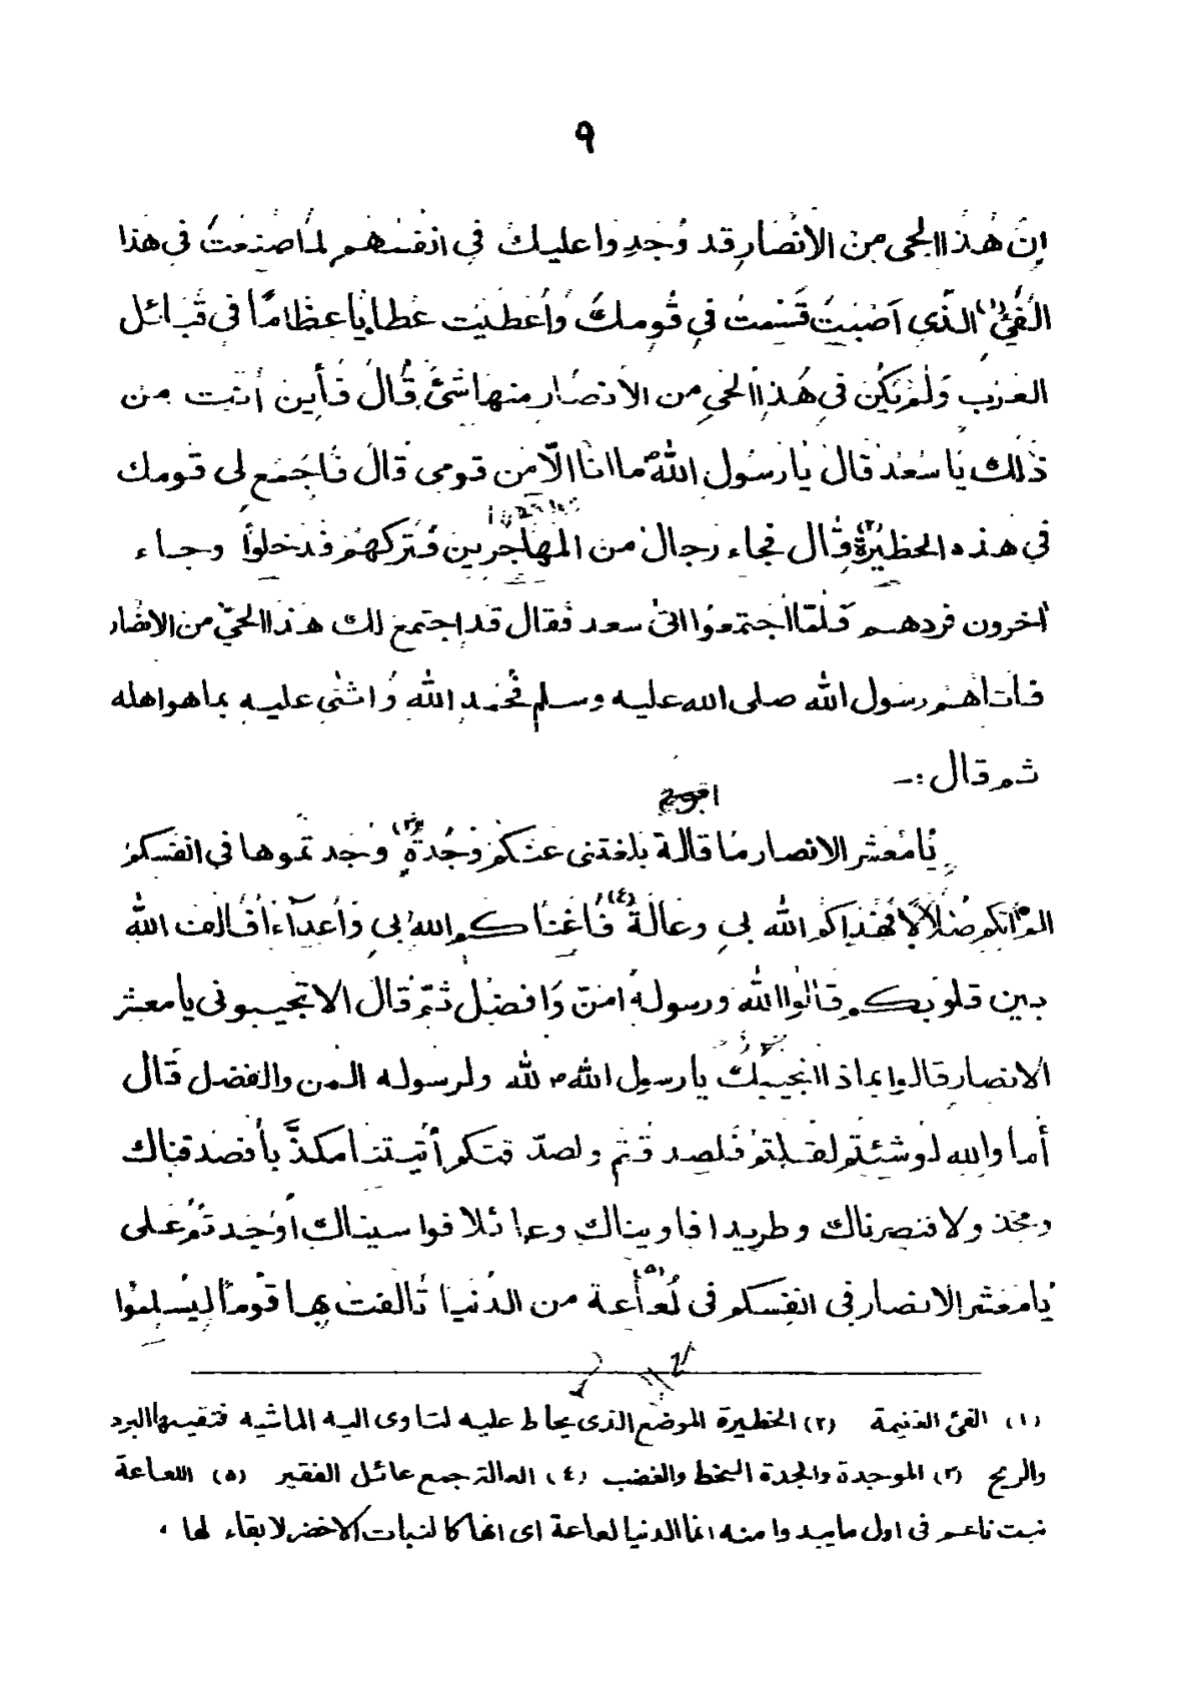 ٩
إن هذا الحى من الانصار قد وجدوا عليك في انفسهم لما صنعت في هذا
الفئ (١) الذي اصبت قسمت في قومك وأعطيت عطايا عظاما في قبائل
العرب ولم يكن في هذا الحي من الانصار منها شئ قال فأين أنت من
ذلك يا سعد قال يا رسول الله ما انا الا من قومى قال فاجمع لى قومك
في هذه الحظيرة (٢) قال فجاء رجال من المهاجرين فتركهم فدخلوا وجاء
آخرون فردهم فلما اجتمعوا اتى سعد فقال قد اجتمع لك هذا الحي من الانصار
فاتاهم رسول الله صلى الله عليه وسلم فحمد الله واثنى عليه بما هو اهله
ثم قال :ـ
يا معشر الانصار ما قالة بلغتنى عنكم وجدة (٣) وجد تموها في انفسكم
الم آتكم ضلالا فهداكم الله بي وعالة (٤) فاغناكم الله بي وأعداءا فألف الله
بين قلوبكم قالوا الله ورسوله امن وافضل ثم قال الا تجيبونى يا معشر
الانصار قالوا بما ذا نجيبك يا رسول الله لله ولرسوله المن والفضل قال
أما والله لو شئتم لقلتم فلصد قتم ولصد قتكم أتيتنا مكذبا فصدقناك
ومخذ ولا فنصرناك وطريدا فاويناك وعا ئلا فواسيناك أوجدتم على
يا معشر الانصار في انفسكم في لعاعة (٥) من الدنيا تألفت بها قوما ليسلموا
(١) الفئ الغنيمة (٢) الحظيرة الموضع الذى يحاط عليه لتاوى اليه الماشيه فتقيها البرد
والريح (٣) الموجدة والجدة السخط والغضب (٤) العالة جمع عائل الفقير (٥) اللعاعة
نبت ناعم فى اول ما يبد وا منه انما الدنيا لعاعة اى انها كا لنبات الاخضر لا بقاء لها .